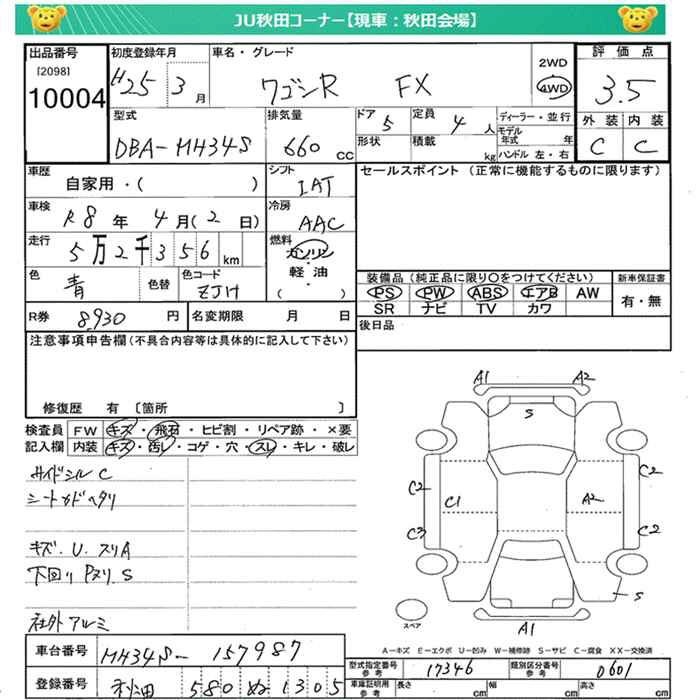 JU秋田コーナー【現車：秋田会場】
出品番号
[2098]
10004
初度登録年月
H25 3月
車名・グレード
ワゴンR FX
2WD
4WD
評価点
3.5
外装 内装
C C
型式
DBA-MH34S
排気量
660 cc
ドア 5
定員 4 人
形状
積載 kg
ディーラー・並行
モデル年式 年
ハンドル 左・右
車歴
自家用・( )
シフト
IAT
セールスポイント（正常に機能するものに限ります）
車検
R8年 4月(2日)
冷房
AAC
走行
5万2千356km
燃料
ガソリン
軽油
・
( )
色
青
色替
色コード
ZJH
装備品（純正品に限り○をつけてください）
PS PW ABS エアB AW
SR ナビ TV カワ
新車保証書
有・無
R券 8,930 円
名変期限 月 日
後日品
注意事項申告欄（不具合内容等は具体的に記入して下さい）
修復歴 有 〔箇所 〕
検査員記入欄
FW キズ・飛石・ヒビ割・リペア跡・×要
内装 キズ・汚レ・コゲ・穴・スレ・キレ・破レ
サイドシル C
シートカドヘタリ
キズ.U.スリA
下回り Pヌリ S
社外アルミ
A1 A2
S
C2 C2
C1 A2
C3 C2
S
A1
スペア
A－キズ E－エクボ U－凹み W－補修跡 S－サビ C－腐食 XX－交換済
車台番号 MH34S-157987
登録番号 秋田 580 ぬ 1305
型式指定番号 参考 17346
類別区分番号 参考 0601
車庫証明用 参考 長さ cm 幅 cm 高さ cm